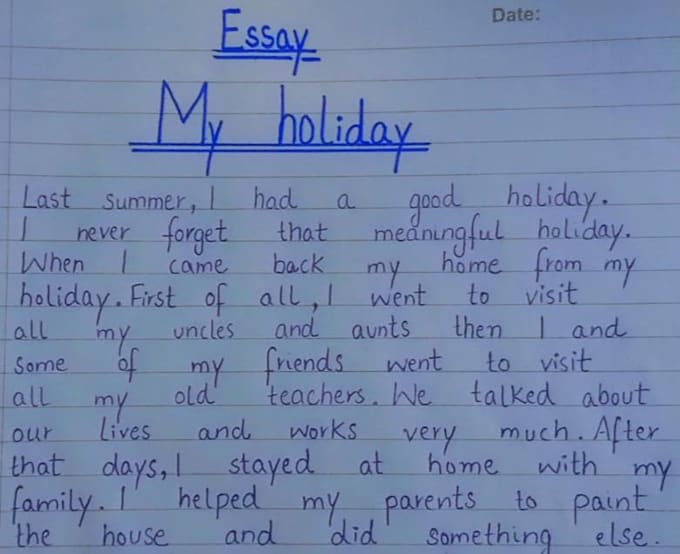 Date:
Essay
My holiday
Last summer, I had a good holiday.
I never forget that meaningful holiday.
When I came back my home from my
holiday. First of all, I went to visit
all my uncles and aunts then I and
some of my friends went to visit
all my old teachers. We talked about
our lives and works very much. After
that days, I stayed at home with my
family. I helped my parents to paint
the house and did something else.